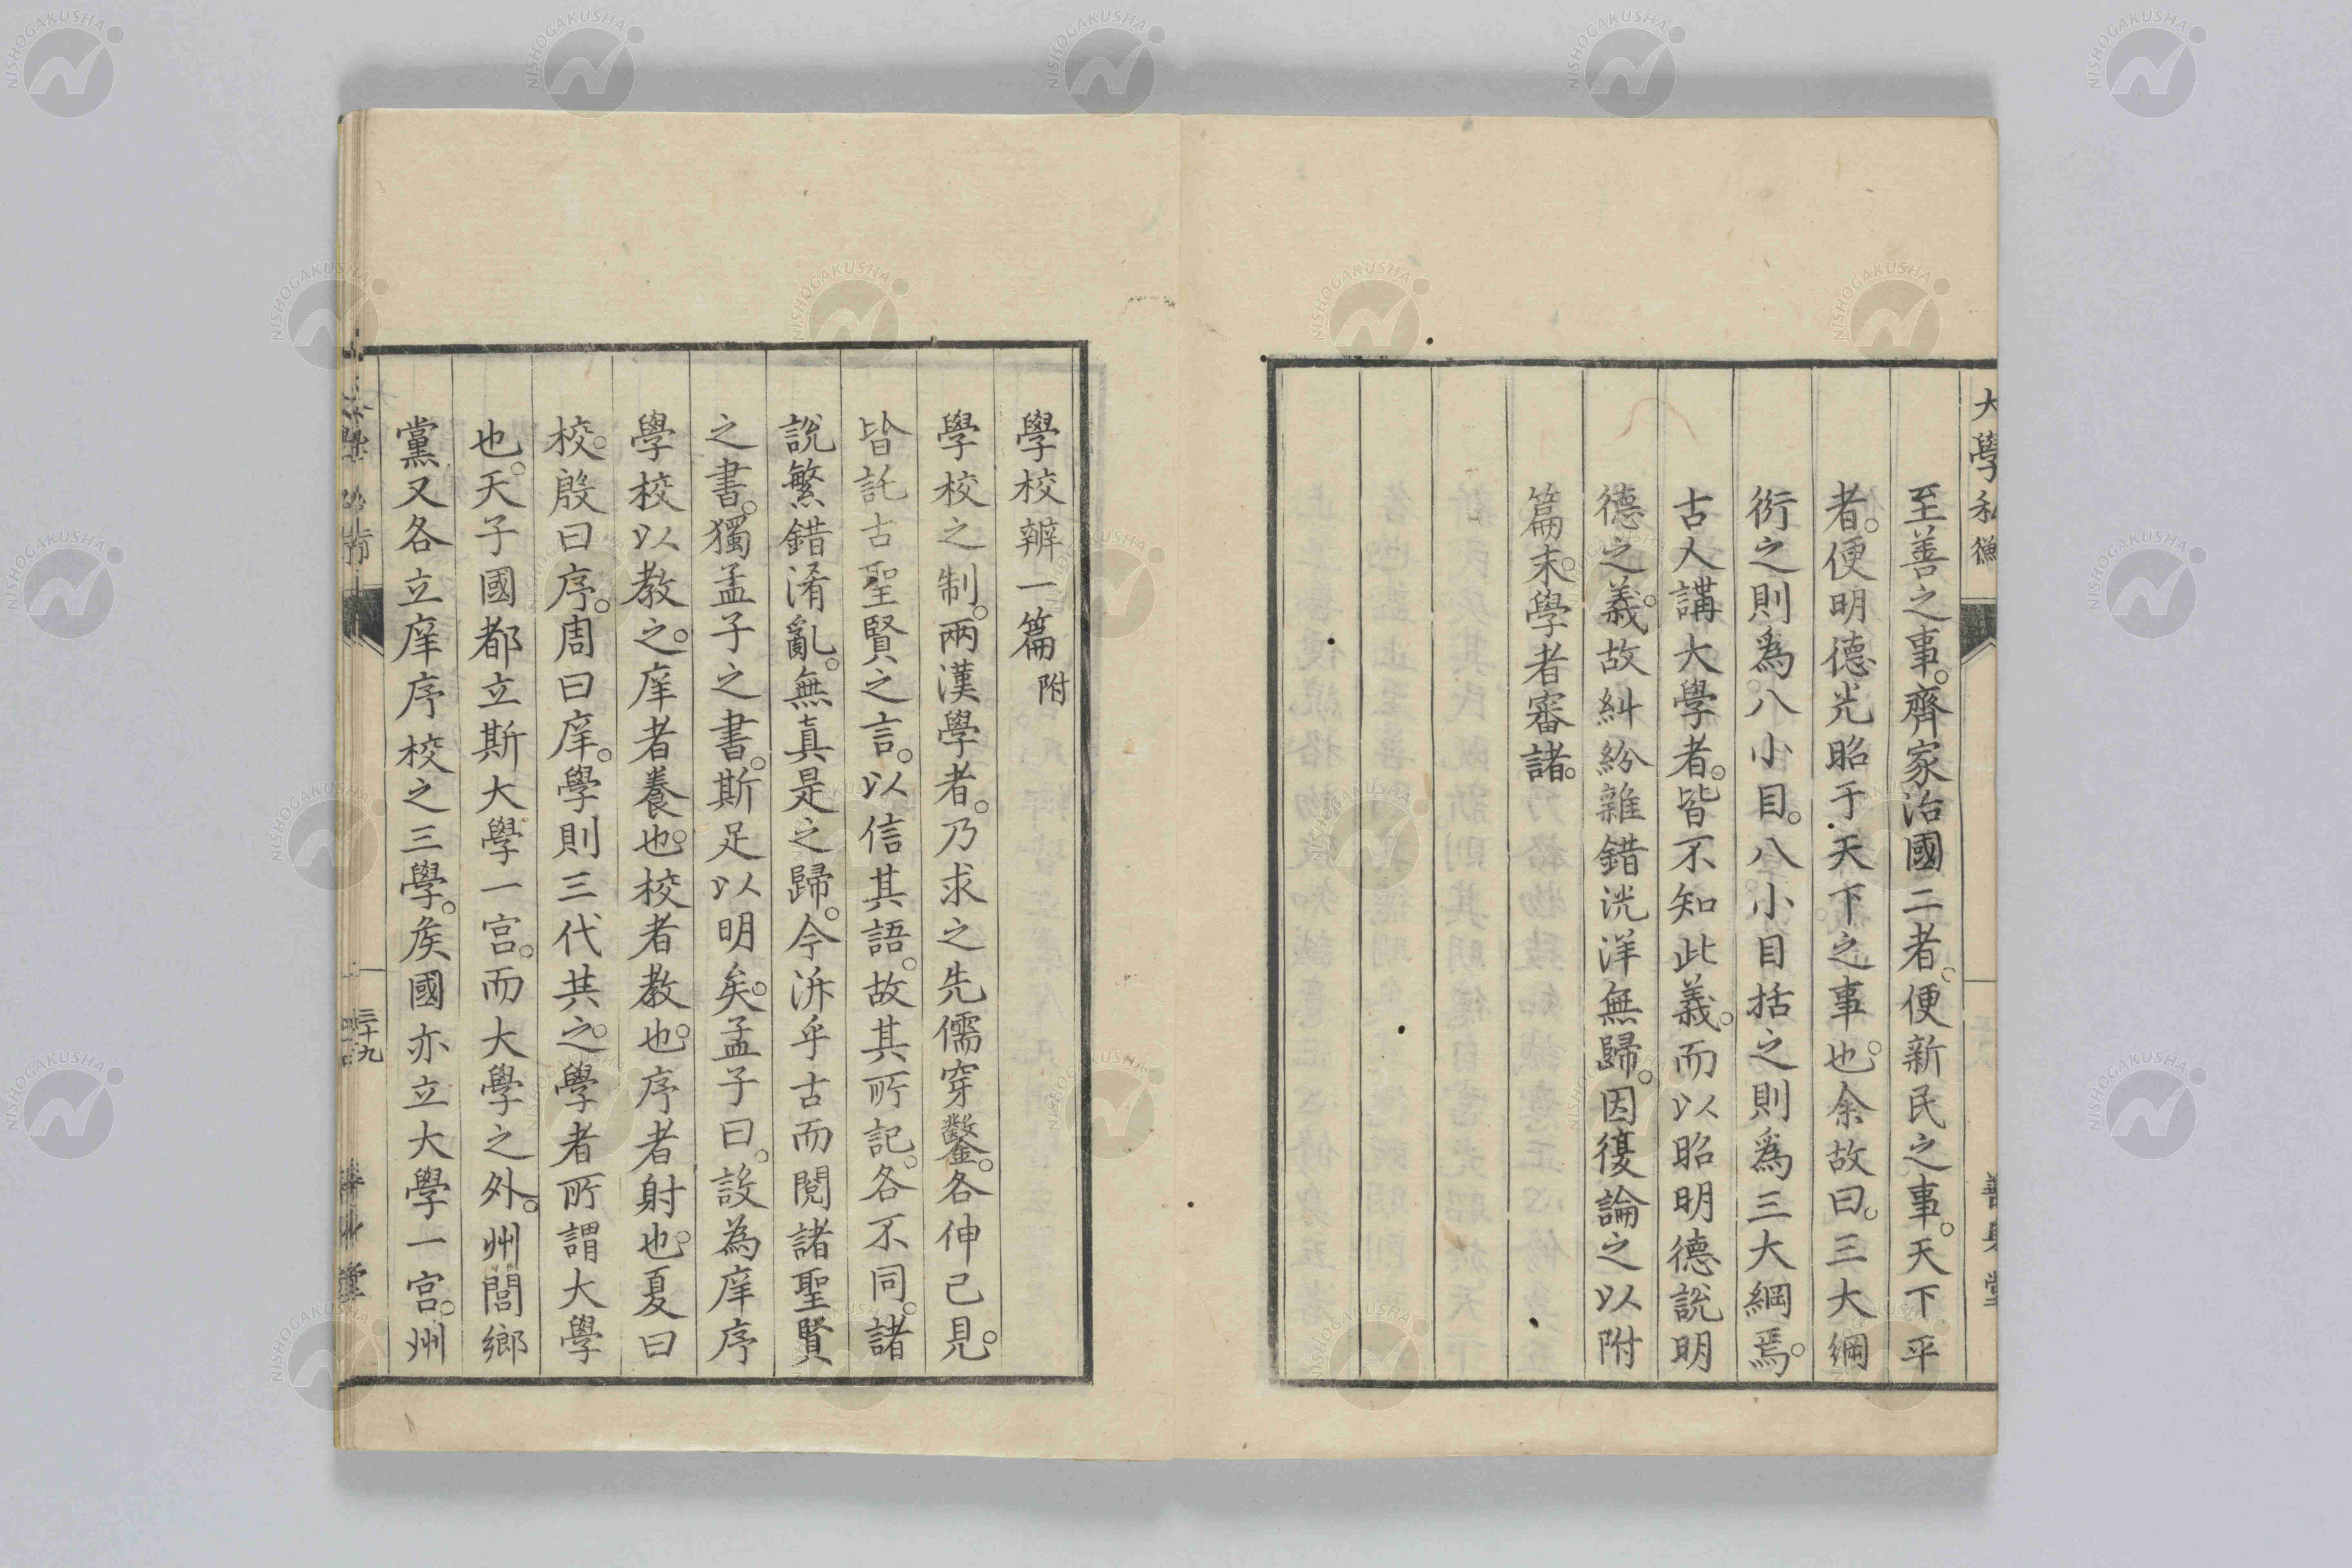 大學私衡
至善之事。齊家治國二者。便新民之事。天下平
者。便明德光昭于天下之事也。余故曰。三大綱
衍之則爲八小目。八小目括之則爲三大綱焉。
古人講大學者。皆不知此義。而以昭明德說明
德之義。故糾紛雜錯洸洋無歸。因復論之以附
篇末。學者審諸。
學校辨一篇附
學校之制。兩漢學者。乃求之先儒穿鑿。各伸己見。
皆託古聖賢之言。以信其語。故其所記。各不同。諸
說繁錯淆亂。無真是之歸。今泝乎古而閱諸聖賢
之書。獨孟子之書。斯足以明矣。孟子曰。設為庠序
學校以教之。庠者養也。校者教也。序者射也。夏曰
校。殷曰序。周曰庠。學則三代共之。學者所謂大學
也。天子國都立斯大學一宮。而大學之外。州閭鄉
黨又各立庠序校之三學。矦國亦立大學一宮。州
三十九
NISHOGAKUSHA